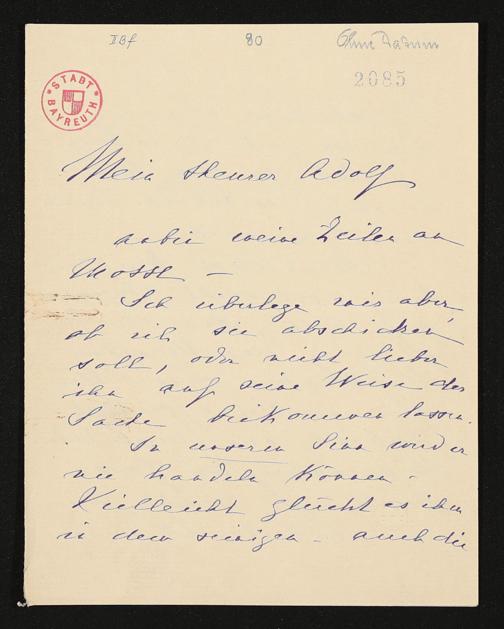 II Bf 80 Ohne Datum
2085
STADT BAYREUTH
Mein theurer Adolf
anbei meine Zeilen an
Mossl –
Ich überlege mir aber,
ob ich sie abschicken
soll, oder nicht lieber
ihn auf seine Weise der
Sache beikommen lassen.
In unserem Sinn wird er
nie handeln können.
Vielleicht glückt es ihm
in dem seinigen – auch die